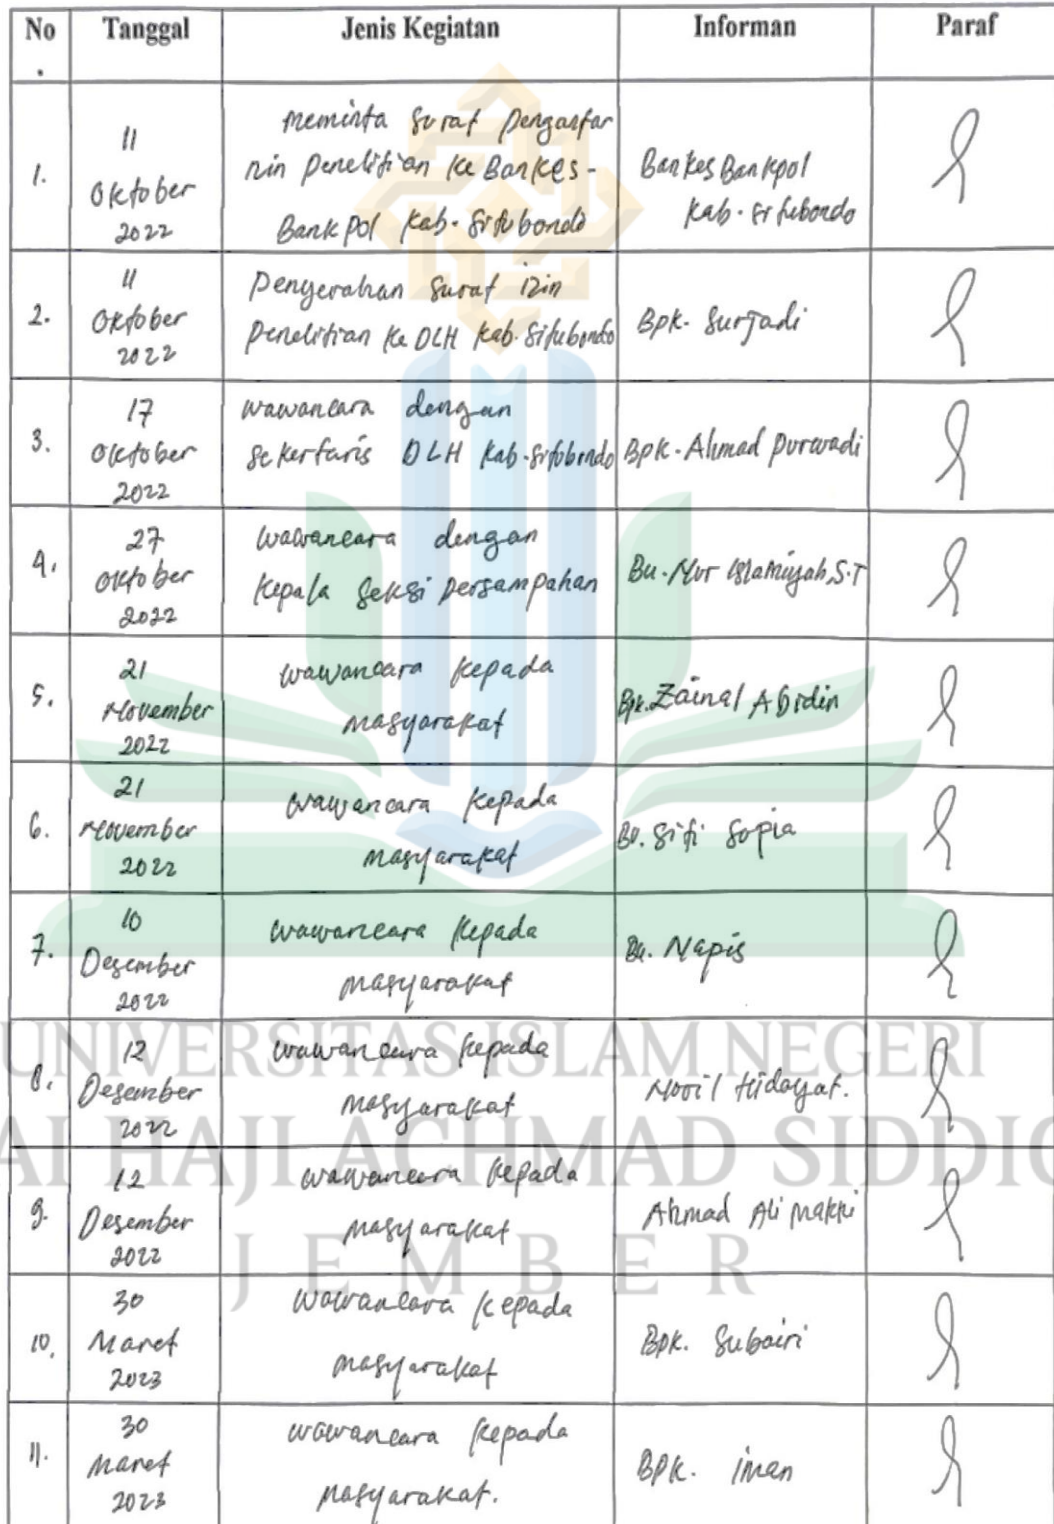 No Tanggal Jenis Kegiatan Informan Paraf
.
1.
11
Oktober
2022
meminta Surat Pengantar
izin Penelitian Ke Bankes-
Bank Pol Kab. Situbondo
Bankes Bankpol
Kab. Situbondo
2.
11
Oktober
2022
Penyerahan Surat izin
Penelitian Ke DLH Kab. Situbondo
Bpk. Surjadi
3.
17
Oktober
2022
wawancara dengan
Sekertaris DLH Kab. Situbondo
Bpk. Ahmad purwadi
4.
27
Oktober
2022
wawancara dengan
Kepala Seksi Persampahan
Bu. Nur Islamiyah, S.T
5.
21
November
2022
wawancara Kepada
masyarakat
Bpk. Zainal Abidin
6.
21
November
2022
wawancara Kepada
masyarakat
Bu. Siti Sopia
7.
10
Desember
2022
wawancara Kepada
masyarakat
Bu. Napis
8.
12
Desember
2022
wawancara Kepada
masyarakat
Hidayat.
9.
12
Desember
2022
wawancara Kepada
masyarakat
Ahmad Ali Makki
10.
30
Maret
2023
wawancara Kepada
masyarakat
Bpk. Subairi
11.
30
Maret
2023
wawancara Kepada
masyarakat.
BPK. iman
UNIVERSITAS ISLAM NEGERI
AI HAJI ACHMAD SIDDIQ
JEMBER